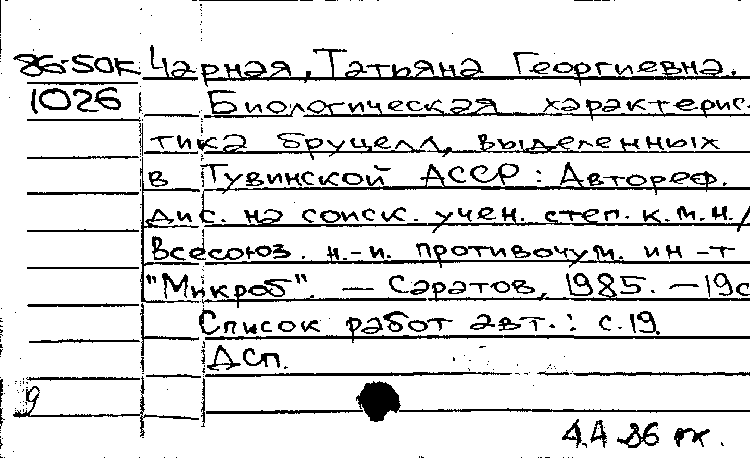 86-50к Чарная, Татьяна Георгиевна.
1026 Биологическая характерис-
тика бруцелл, выделенных
в Тувинской АССР: Автореф.
дис. на соиск. учен. степ. к.м.н./
Всесоюз. н.-и. противочум. ин-т
"Микроб". — Саратов, 1985. — 19с
Список работ авт.: с.19.
ДСП.
9
4.4 86